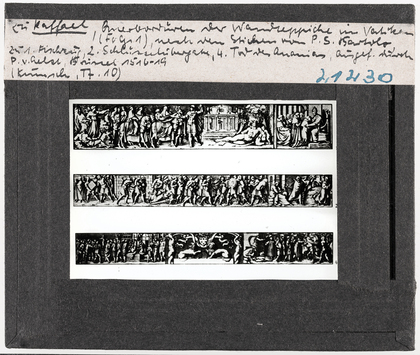 zu Raffael, der Wandteppiche im Vatikan
nach den Stichen von P. S. Bartolo
zu 1. Fischzug, 2. Schlüsselübergabe, 4. Tod des Ananias, ausgef. durch
P. v. Aelst, Brüssel 1516-19
21230